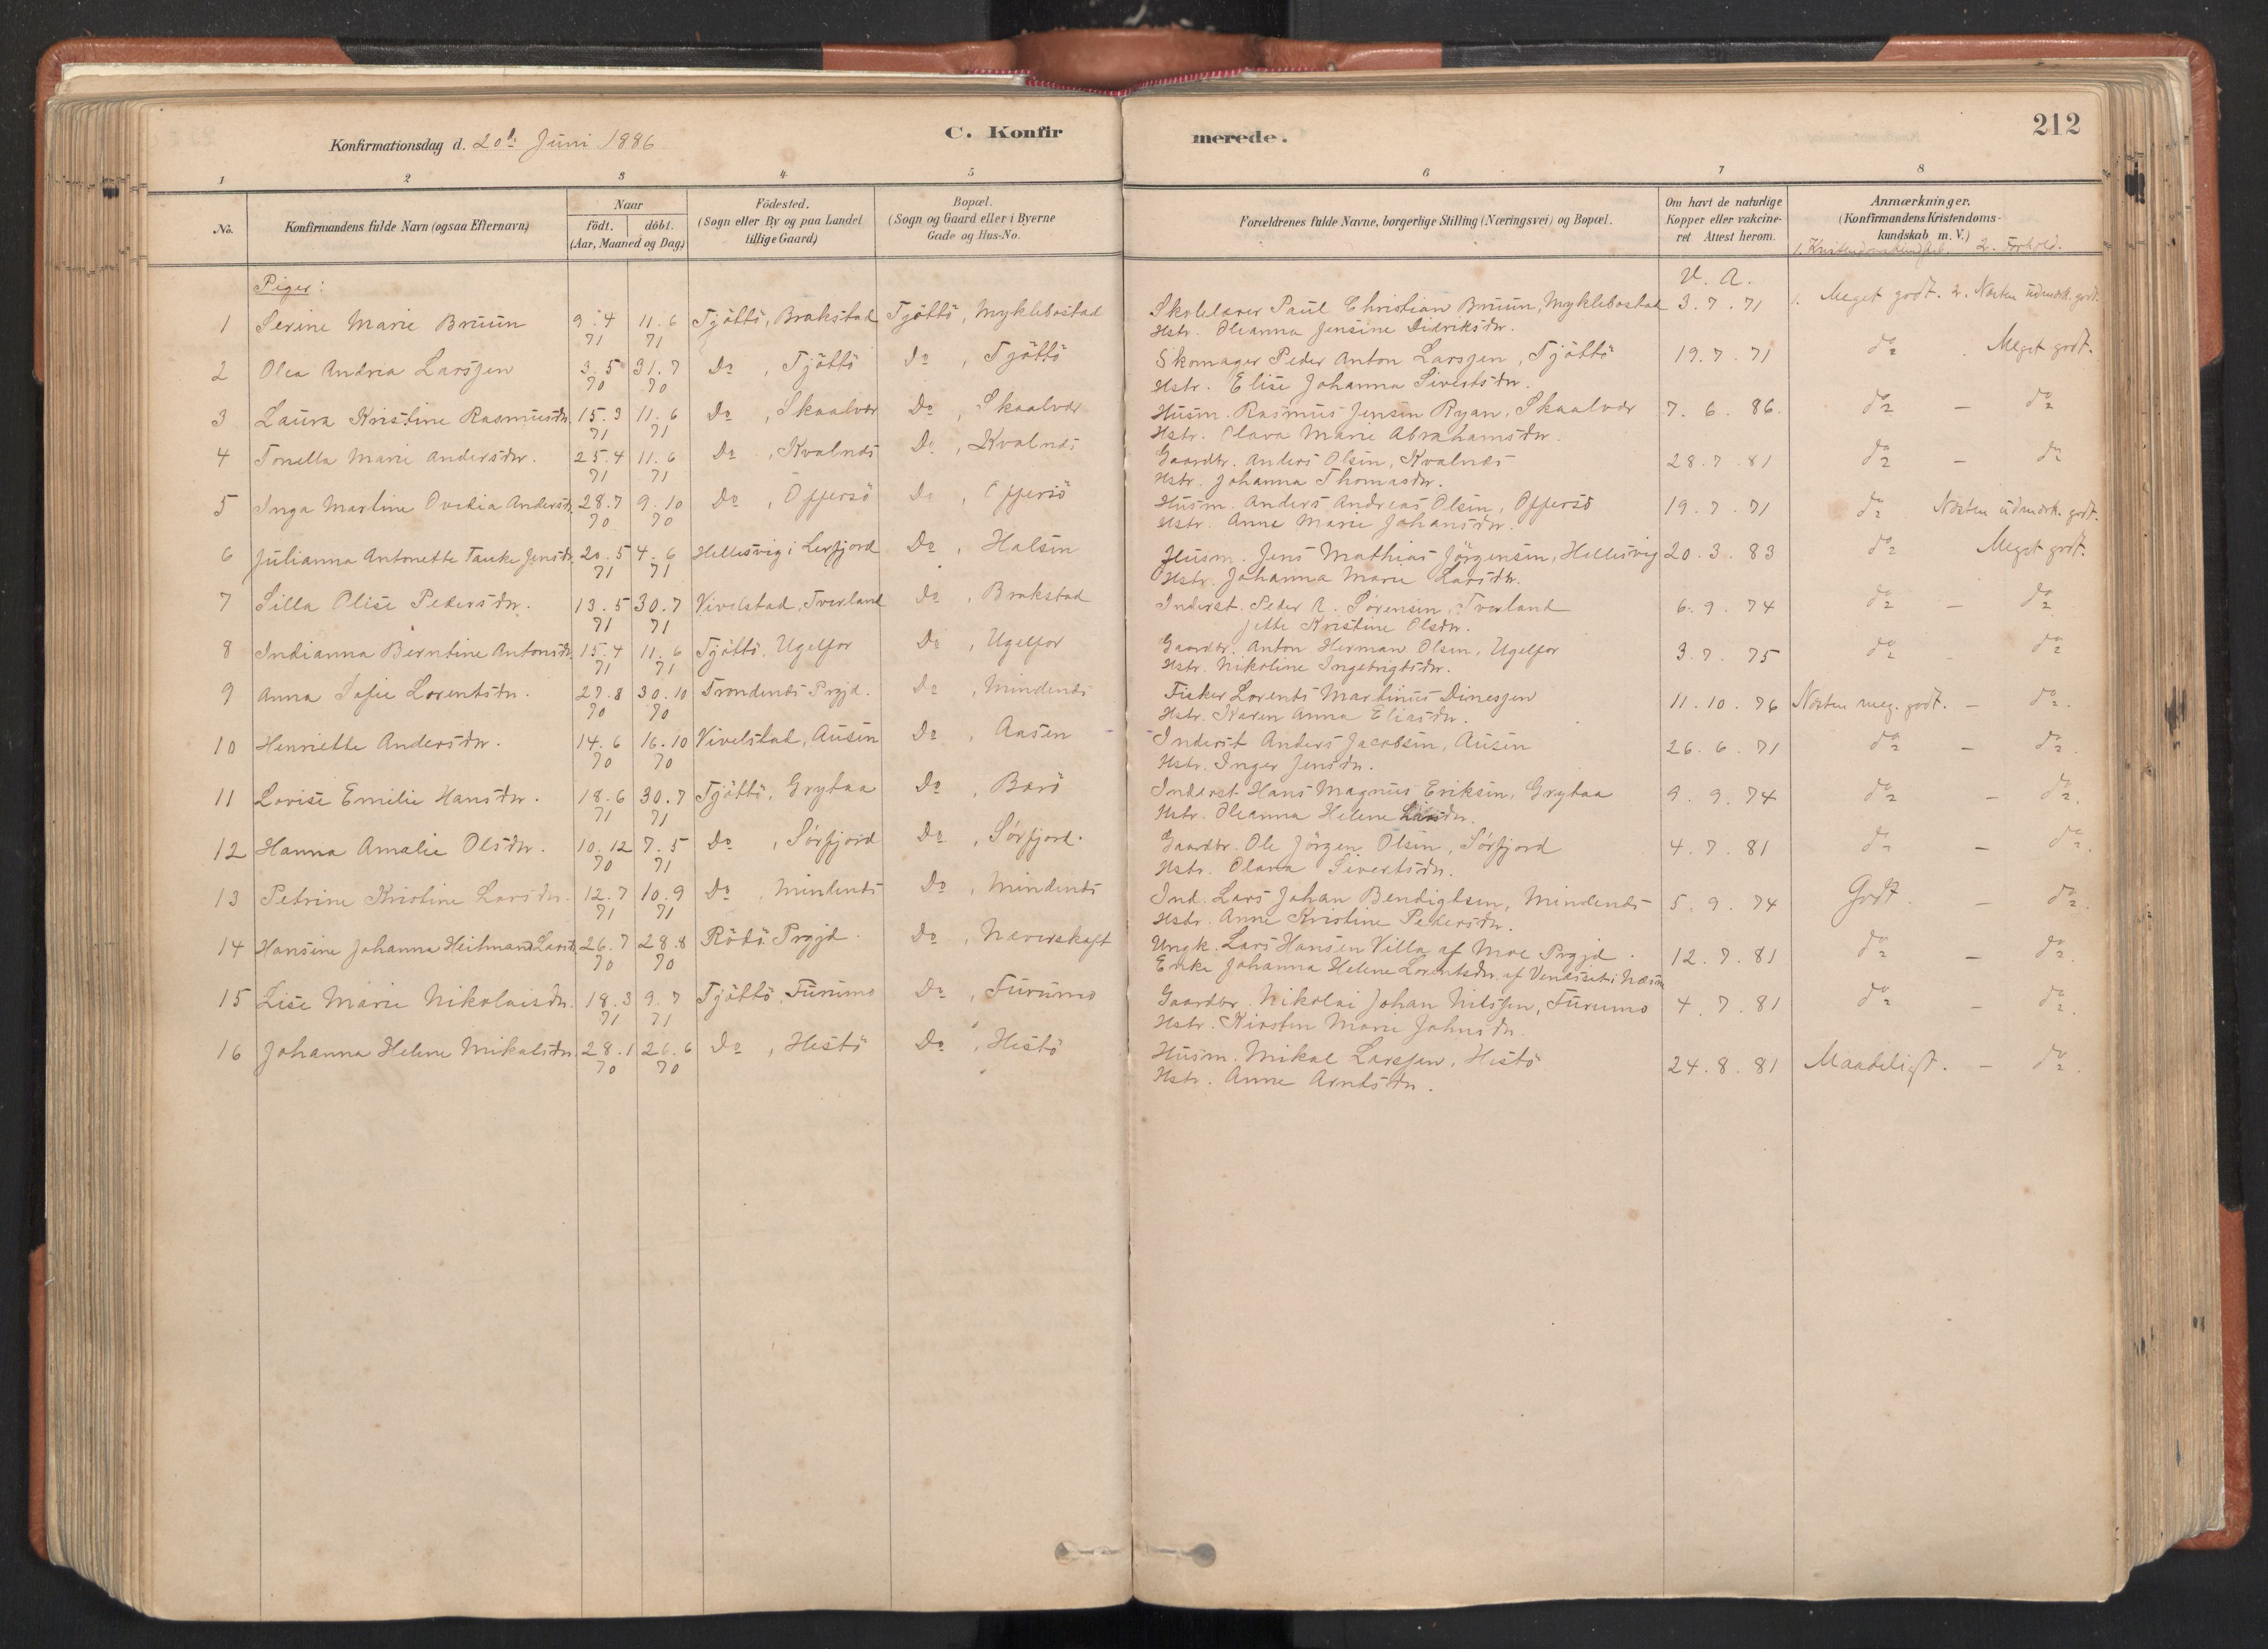 212
Konfirmationsdag d. 20de Juni 1886
C. Konfirmerede.
1 2 3 4 5 6 7 8
No.
Konfirmandens fulde Navn (ogsaa Efternavn)
Naar födt. döbt. (Aar, Maaned og Dag)
Födested. (Sogn eller By og paa Landet tillige Gaard)
Bopæl. (Sogn og Gaard eller i Byerne Gade og Hus-No.
Forældrenes fulde Navne, borgerlige Stilling (Næringsvei) og Bopæl.
Om havt de naturlige Kopper eller vakcineret Attest herom.
Anmærkninger. (Konfirmandens Kristendomskundskab m. V.)
1. Kristendomskundskab. 2. Forhold.
Piger:
V. A.
1 Serine Marie Bruun 9.4 71 11.6 71 Tjöttö, Brakstad Tjöttö, Myklebostad Skolelærer Paul Christian Bruun, Myklebostad 3.7.71 1. Meget godt. 2. Næsten udmærk. godt.
Hstr. Oleanna Jensine Didriksdtr.
2 Olea Andrea Larssen 3.5 70 31.7 70 Do, Tjöttö Do, Tjöttö Skomager Peder Anton Larssen, Tjöttö 19.7.71 do Meget godt.
Hstr. Elise Johanna Sivertsdtr.
3 Laura Kristine Rasmusdtr. 15.3 71 11.6 71 Do, Skaalvær Do, Skaalvær Husm. Rasmus Jensen Ryan, Skaalvær 7.6.86. do – do
Hstr. Olava Marie Abrahamsdtr.
4 Tonella Marie Andersdtr. 25.4 71 11.6 71 Do, Kvalnæs Do, Kvalnæs Gaardbr. Anders Olsen, Kvalnæs 28.7.81 do – do
Hstr. Johanna Thomasdtr.
5 Inga Martine Ovidia Andersdtr. 28.7 70 9.10 70 Do, Offersö Do, Offersö Husm. Anders Andreas Olsen, Offersö 19.7.71 do Næsten udmærk. godt.
Hstr. Anne Marie Johansdtr.
6 Julianna Antonette Tanke Jensdtr. 20.5 71 4.6 71 Hellesvig i Lerfjord Do, Halsen Husm. Jens Mathias Jörgensen, Hellesvig 20.3.83 do Meget godt.
Hstr. Johanna Marie Larsdtr.
7 Silla Olise Pedersdtr. 13.5 71 30.7 71 Vivelstad, Tverland Do, Brakstad Inderst. Peder A. Sörensen, Tverland 6.9.74 do – do
Jette Kristine Olsdtr.
8 Indianna Berntine Antonsdtr. 15.4 71 11.6 71 Tjöttö, Ugelfor Do, Ugelfor Gaardbr. Anton Herman Olsen, Ugelfor 3.7.75 do – do
Hstr. Nikoline Ingebrigtsdtr.
9 Anna Sofie Lorentsdtr. 27.8 70 30.10 70 Trondenæs Prgjd. Do, Mindenæs Fisker Lorents Martinus Dinessen 11.10.76 Næsten meg. godt. – do.
Hstr. Karen Anna Eliasdtr.
10 Henriette Andersdtr. 14.6 70 16.10 70 Vivelstad, Ausen Do, Aasen Inderst Anders Jacobsen, Ausen 26.6.71 do – do.
Hstr. Inger Jensdtr.
11 Lovise Emilie Hansdtr. 18.6 71 30.7 71 Tjöttö, Grytaa Do, Barö Inderst Hans Magnus Eriksen, Grytaa 9.9.74 do – do.
Hstr. Oleanna Helene Larsdtr.
12 Hanna Amalie Olsdtr. 10.12 70 7.5 71 Do, Sörfjord Do, Sörfjord. Gaardbr. Ole Jörgen Olsen, Sörfjord 4.7.81 do – do.
Hstr. Olava Sivertsdtr.
13 Petrine Kristine Larsdtr. 12.7 71 10.9 71 Do, Mindenæs Do, Mindenæs Ind. Lars Johan Bendigtsen, Mindenæs 5.9.74 Godt. – do.
Hstr. Anne Kristine Pedersdtr.
14 Hansine Johanna Heitmand Larsdtr. 26.7 70 28.8 70 Rödö Prgjd. Do, Næverskaft Ungk. Lars Hansen Villa af Moe Prgjd. 12.7.81 do – do.
Enke Johanna Helene Lorentsdtr. af
15 Lise Marie Nikolaisdtr. 18.3 71 9.7 71 Tjöttö, Furumo Do, Furumo Gaardbr. Nikolai Johan Nilssen, Furumo 4.7.81 do – do.
Hstr. Kirsten Marie Johnsdtr.
16 Johanna Helene Mikalsdtr. 28.1 70 26.6 70 Do, Hestö Do, Hestö Husm. Mikal Larssen, Hestö 24.8.81 Maadeligt. – do.
Hstr. Anne Arntsdtr.